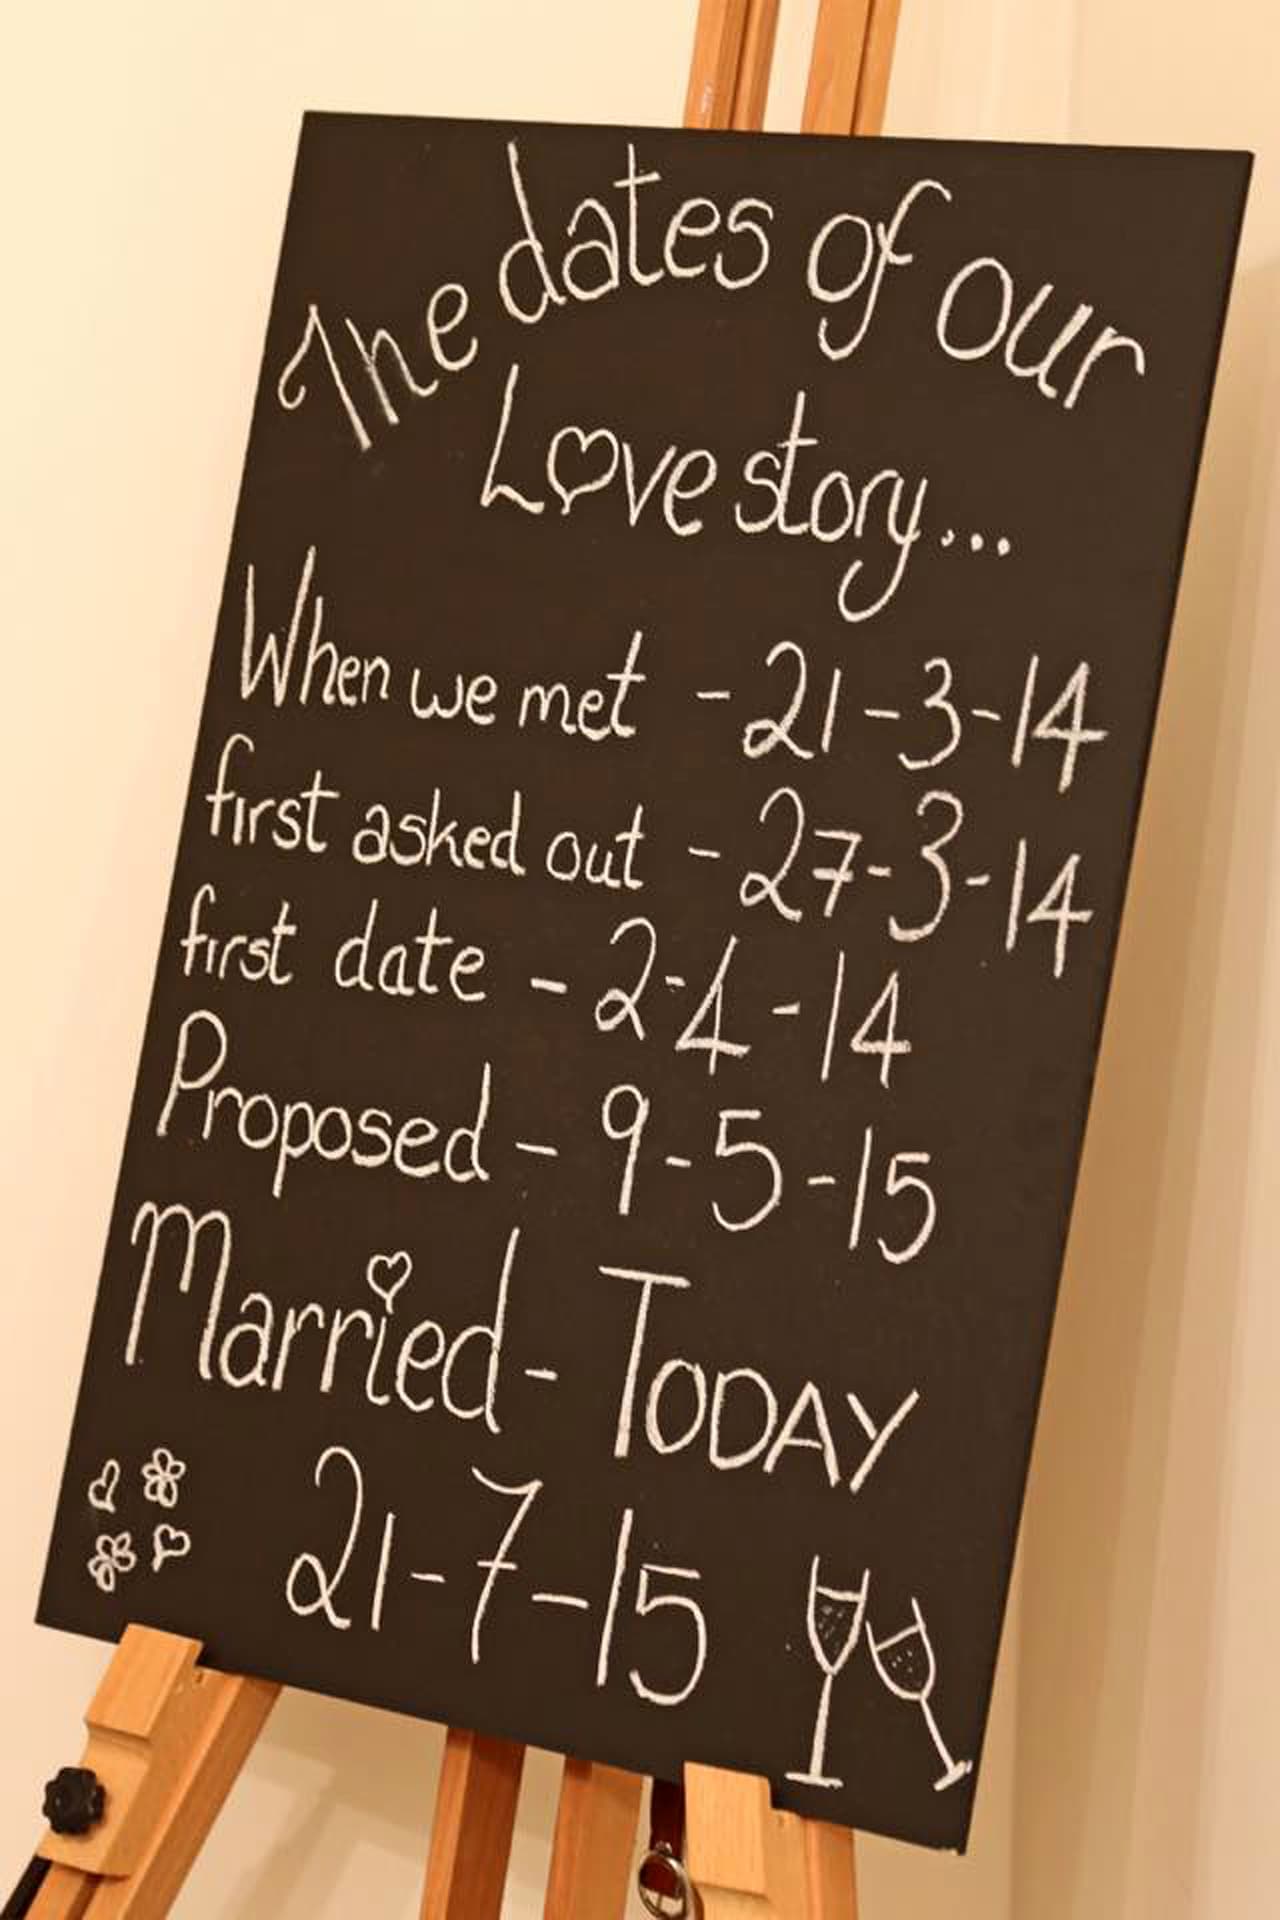 The dates of our
Love story...
When we met - 21-3-14
first asked out - 27-3-14
first date - 2-4-14
Proposed - 9-5-15
Married - TODAY
21-7-15